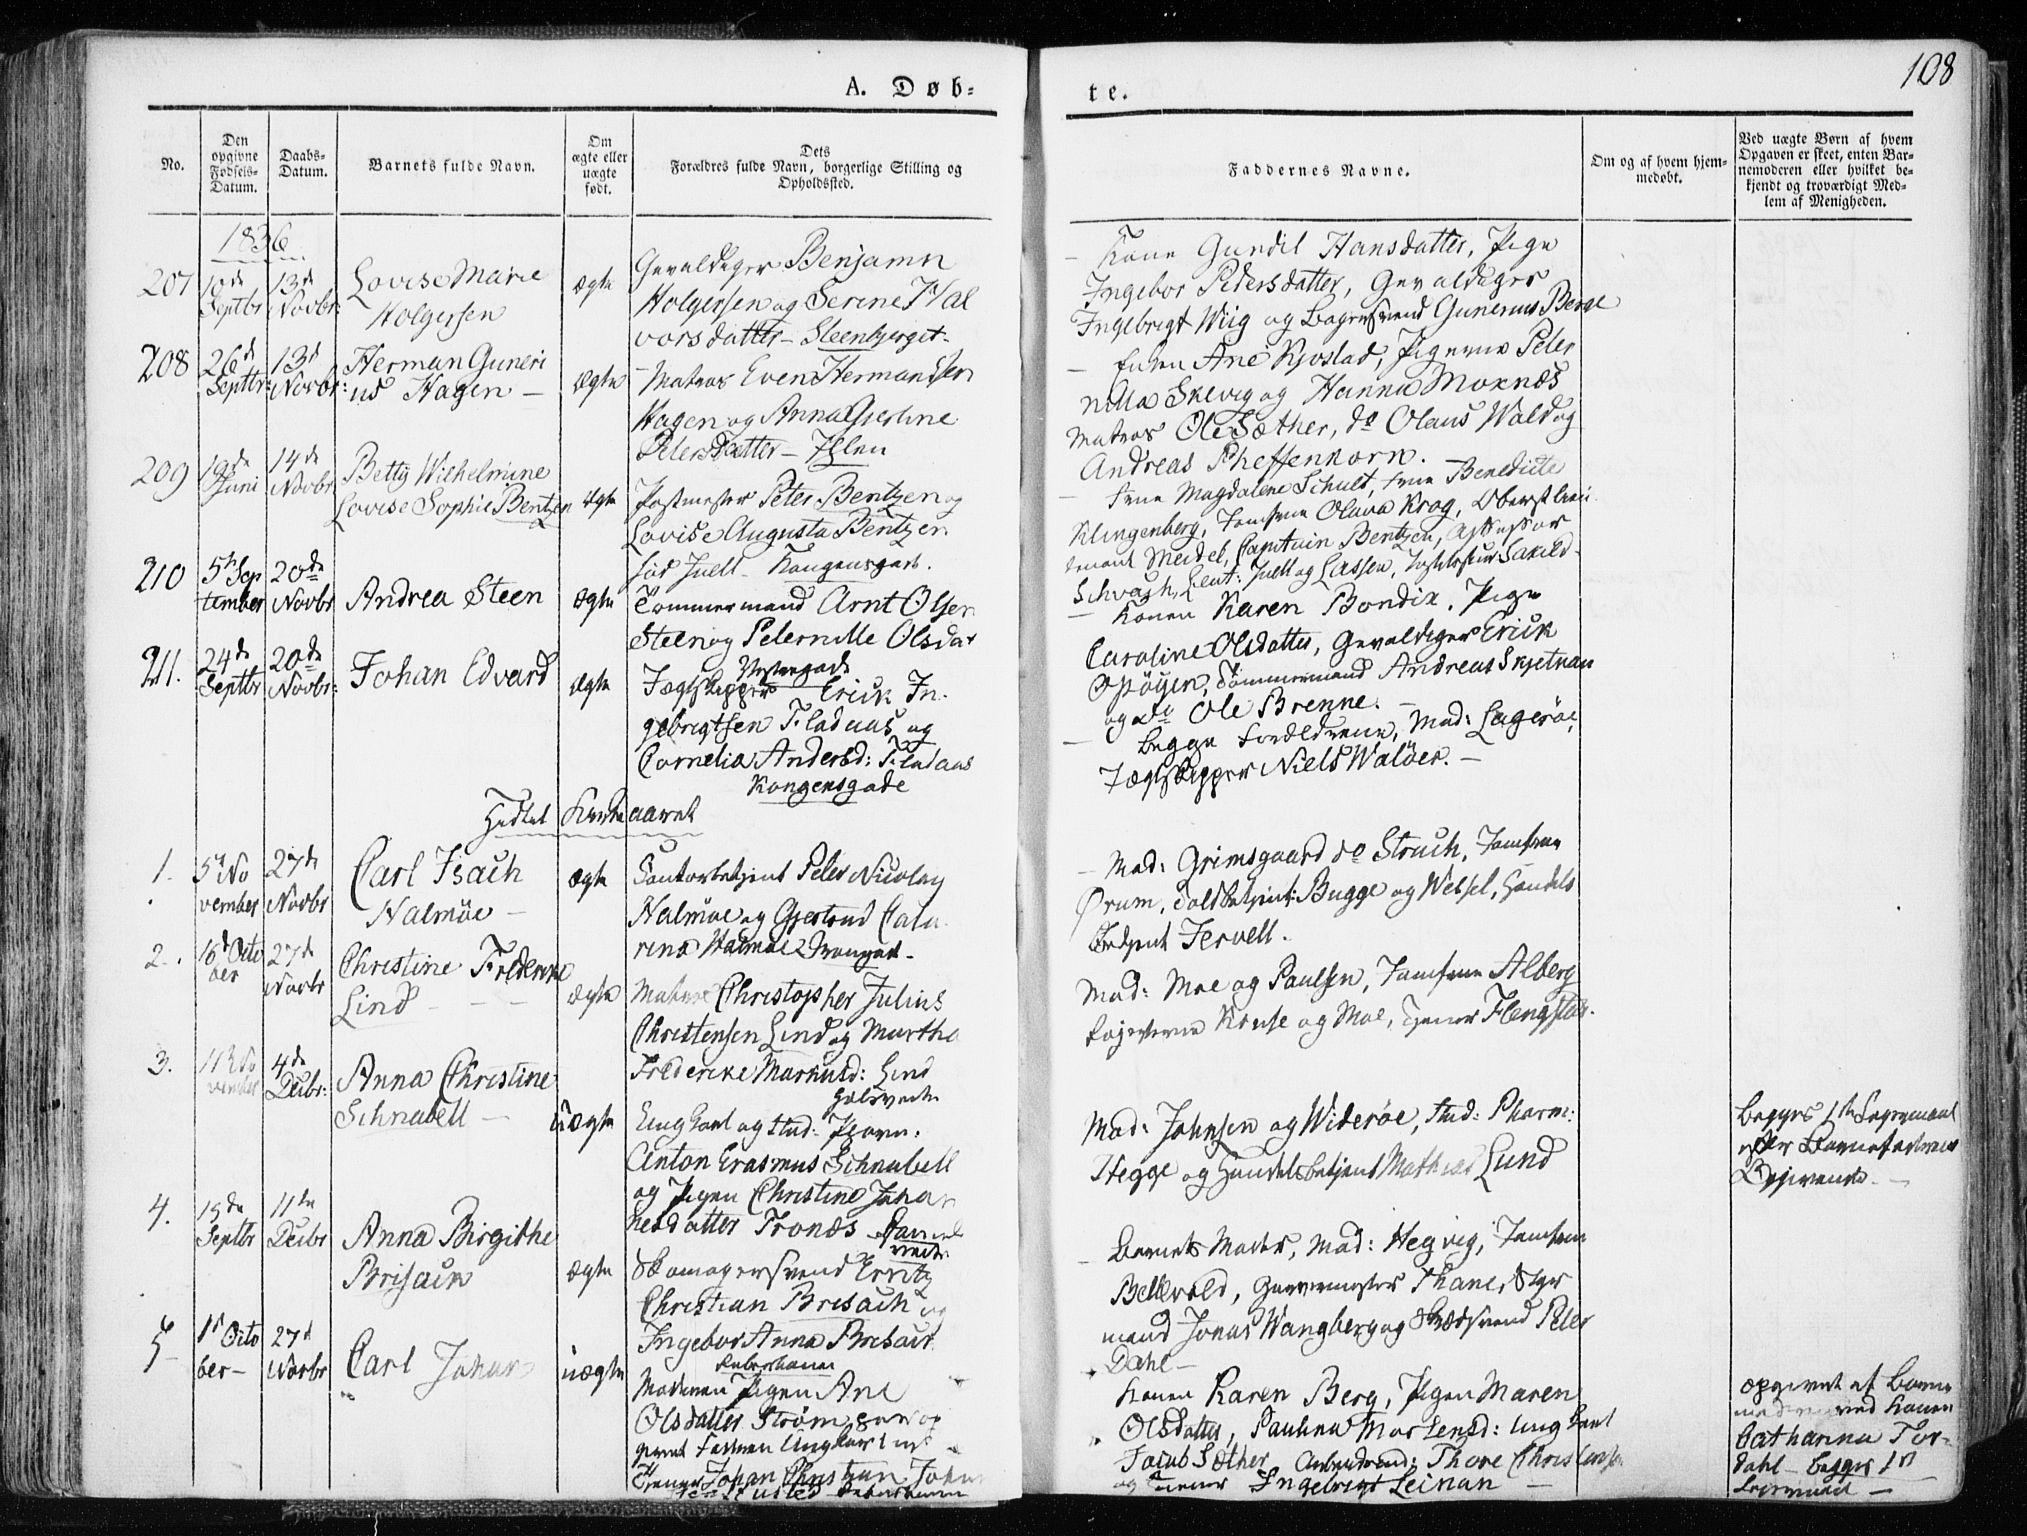 108
A. Døb-
te.
No.
Den opgivne Fødsels-Datum.
Daabs-Datum.
Barnets fulde Navn.
Om ægte eller uægte født.
Dets Forældres fulde Navn, borgerlige Stilling og Opholdssted.
Faddernes Navne.
Om og af hvem hjem-medøbt.
Ved uægte Børn af hvem Opgaven er skeet, enten Bar-nemoderen eller hvilket be-kjendt og troværdigt Med-lem af Menigheden.
1836
207 10de Septbr 13de Novbr: Lovise Marie
Holgersen
ægte
Gevaldiger Benjamn
Holgersen og Serine Hal
vorsdatter - Steenberget.
Kone Gundil Hansdatter, Pige
Ingebor Pedersdatter, Gevaldiger
Ingebrigt Wiig og Bagersvend Gunerius Berge
208 26d Septbr: 13d Novbr: Herman Guneri
us Hagen -
ægte
Matros Even Hermandsen
Hagen og Anna Gjertine
Petersdatter - Ihlen
Ane Kjostad, Pigerne Peter
nilla Skevig og Hanna Moxnæs
Matros Ole Sæther, do Olaus Wald og
Andreas Pheffenkorn.
209 19de Juni 14de Novbr Betty Wilhelmine
Lovise Sophie Bentzen
ægte
Postmester Peter Bentzen og
Lovise Augusta Bentzen
fød Juell - Kongensgade.
Frue Magdalene Schult, Frue Benedicte
Klingenberg, Jomfrue Olava Krog, Oberstlieu
tenant Meidel, Capitain Bentzen, Assessor
Schvach, Lieut: Juell og Lassen,
210 5te Sep
tember 20de Novbr Andrea Steen
ægte
Tømmermand Arnt Olsen
Steen og Peternille Olsdat
Konen Karen Bondix, Pige
Caroline Olsdatter, Gevaldiger Erick
Opøyen, Tømmermand Andreas Skjetnan
og do Ole Brenne. -
211. 24de Septbr 20de Novbr: Johan Edvard
ægte
Jægtskipper Erick In-
gebrigtsen Fladaas og
Cornelia Andersd: Fladaas
Kongensgade
Begge Forældrene, Mad: Lagerøe,
Jægtskipper Niels Waløer. -
Kirkeaaret
1. 5t No
vember 27de Novbr Carl Isach
Halmøe -
ægte
Contorbetjent Peter Nicolay
Halmøe og Gjertrud Catha
rina Halmøe
Mad: Grimsgaard do Struch, Jomfrue
Ørum, Toldbetjent: Bugge og Wessel, Handels
Betjent Fervell.
2. 16d Octo
ber 27de Novbr Christine Frederikke
Lind - - -
ægte
Matros Christopher Julius
Christensen Lind og Martha
Frederike Markusd: Lind
Mad: Moe og Paulsen, Jomfrue Alberg
Kruse og Moe, Tjener Flengstad.
3. 11t No
vember 4de Decbr: Anna Christine
Schnabell -
uægte
Ungkarl og Stud: Pharm:
Anton Erasmus Schnabell
og Pigen Christine Johan
nesdatter Tronæs
Mad: Johnsen og Widerøe, Stud: Pharm:
Hegge og Handelsbetjent Mathias Lund
Begges 1ste Leiermaal
efter Barnefaderens
Opgivende. -
4. 15de Septbr 11te Decbr Anna Birgithe
Brisach
ægte
Skomagersvend Erritz
Christian Brisach og
Ingebor Anna Brisach
Barnets Moder, Mad: Hegvig, Jomfrue
Beltvold, Garvermester Thane, Styr
mand Jonas Wangberg og Svend Peter
Dahl -
5 1t Octo
ber - 27d Novbr Carl Johan
uægte
Moderen Pigen Ane
Olsdatter Strøm har op
givet Faderen Ungkarl
Tjener Johan Christian
Konen Karen Berg, Pigen Maren
Olsdatter, Paulina Mortensd: Ungkarl
Jacob Sæther Thore Christensen
og Tjener Ingebrigt Leinan -
Opgivet af Barne
ved Konen
Catharina Tor-
dahl - begges 1st
Leiermaal -